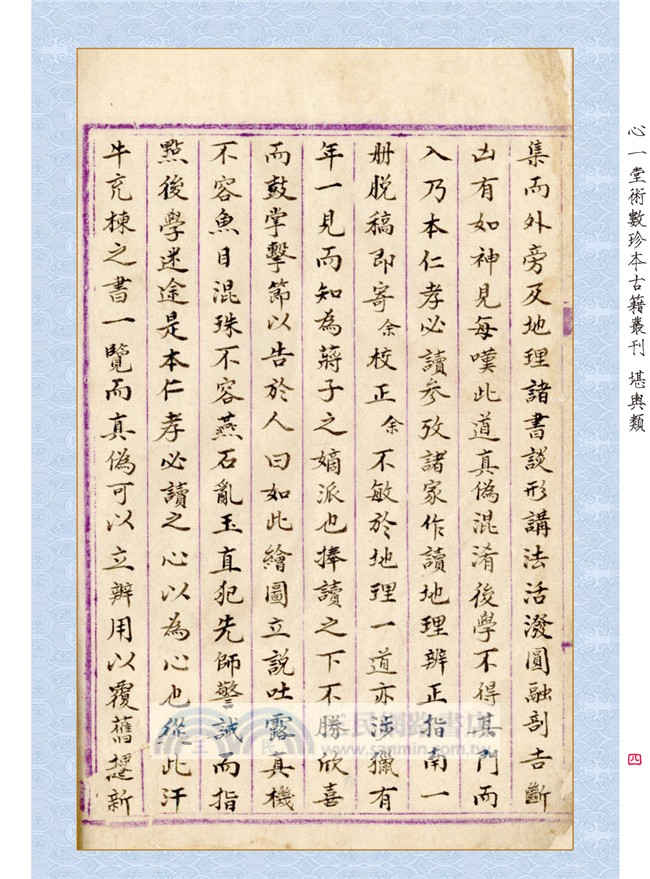 集而外旁及地理諸書談形講法活潑圓融剖吉斷
凶有如神見每嘆此道真偽混淆後學不得其門而
入乃本仁孝必讀參攷諸家作讀地理辨正指南一
册脱稿即寄余校正余不敏於地理一道亦涉獵有
年一見而知為蔣子之嫡派也捧讀之下不勝欣喜
而鼓掌擊節以告於人曰如此繪圖立說吐露真機
不容魚目混珠不容燕石亂玉直犯先師警誡而指
點後學迷途是本仁孝必讀之心以為心也從此汗
牛充棟之書一覽而真偽可以立辨用以覆舊
新
心一堂術數珍本古籍叢刊 堪輿類
四
三民網路書店
www.sanmin.com.tw
三民